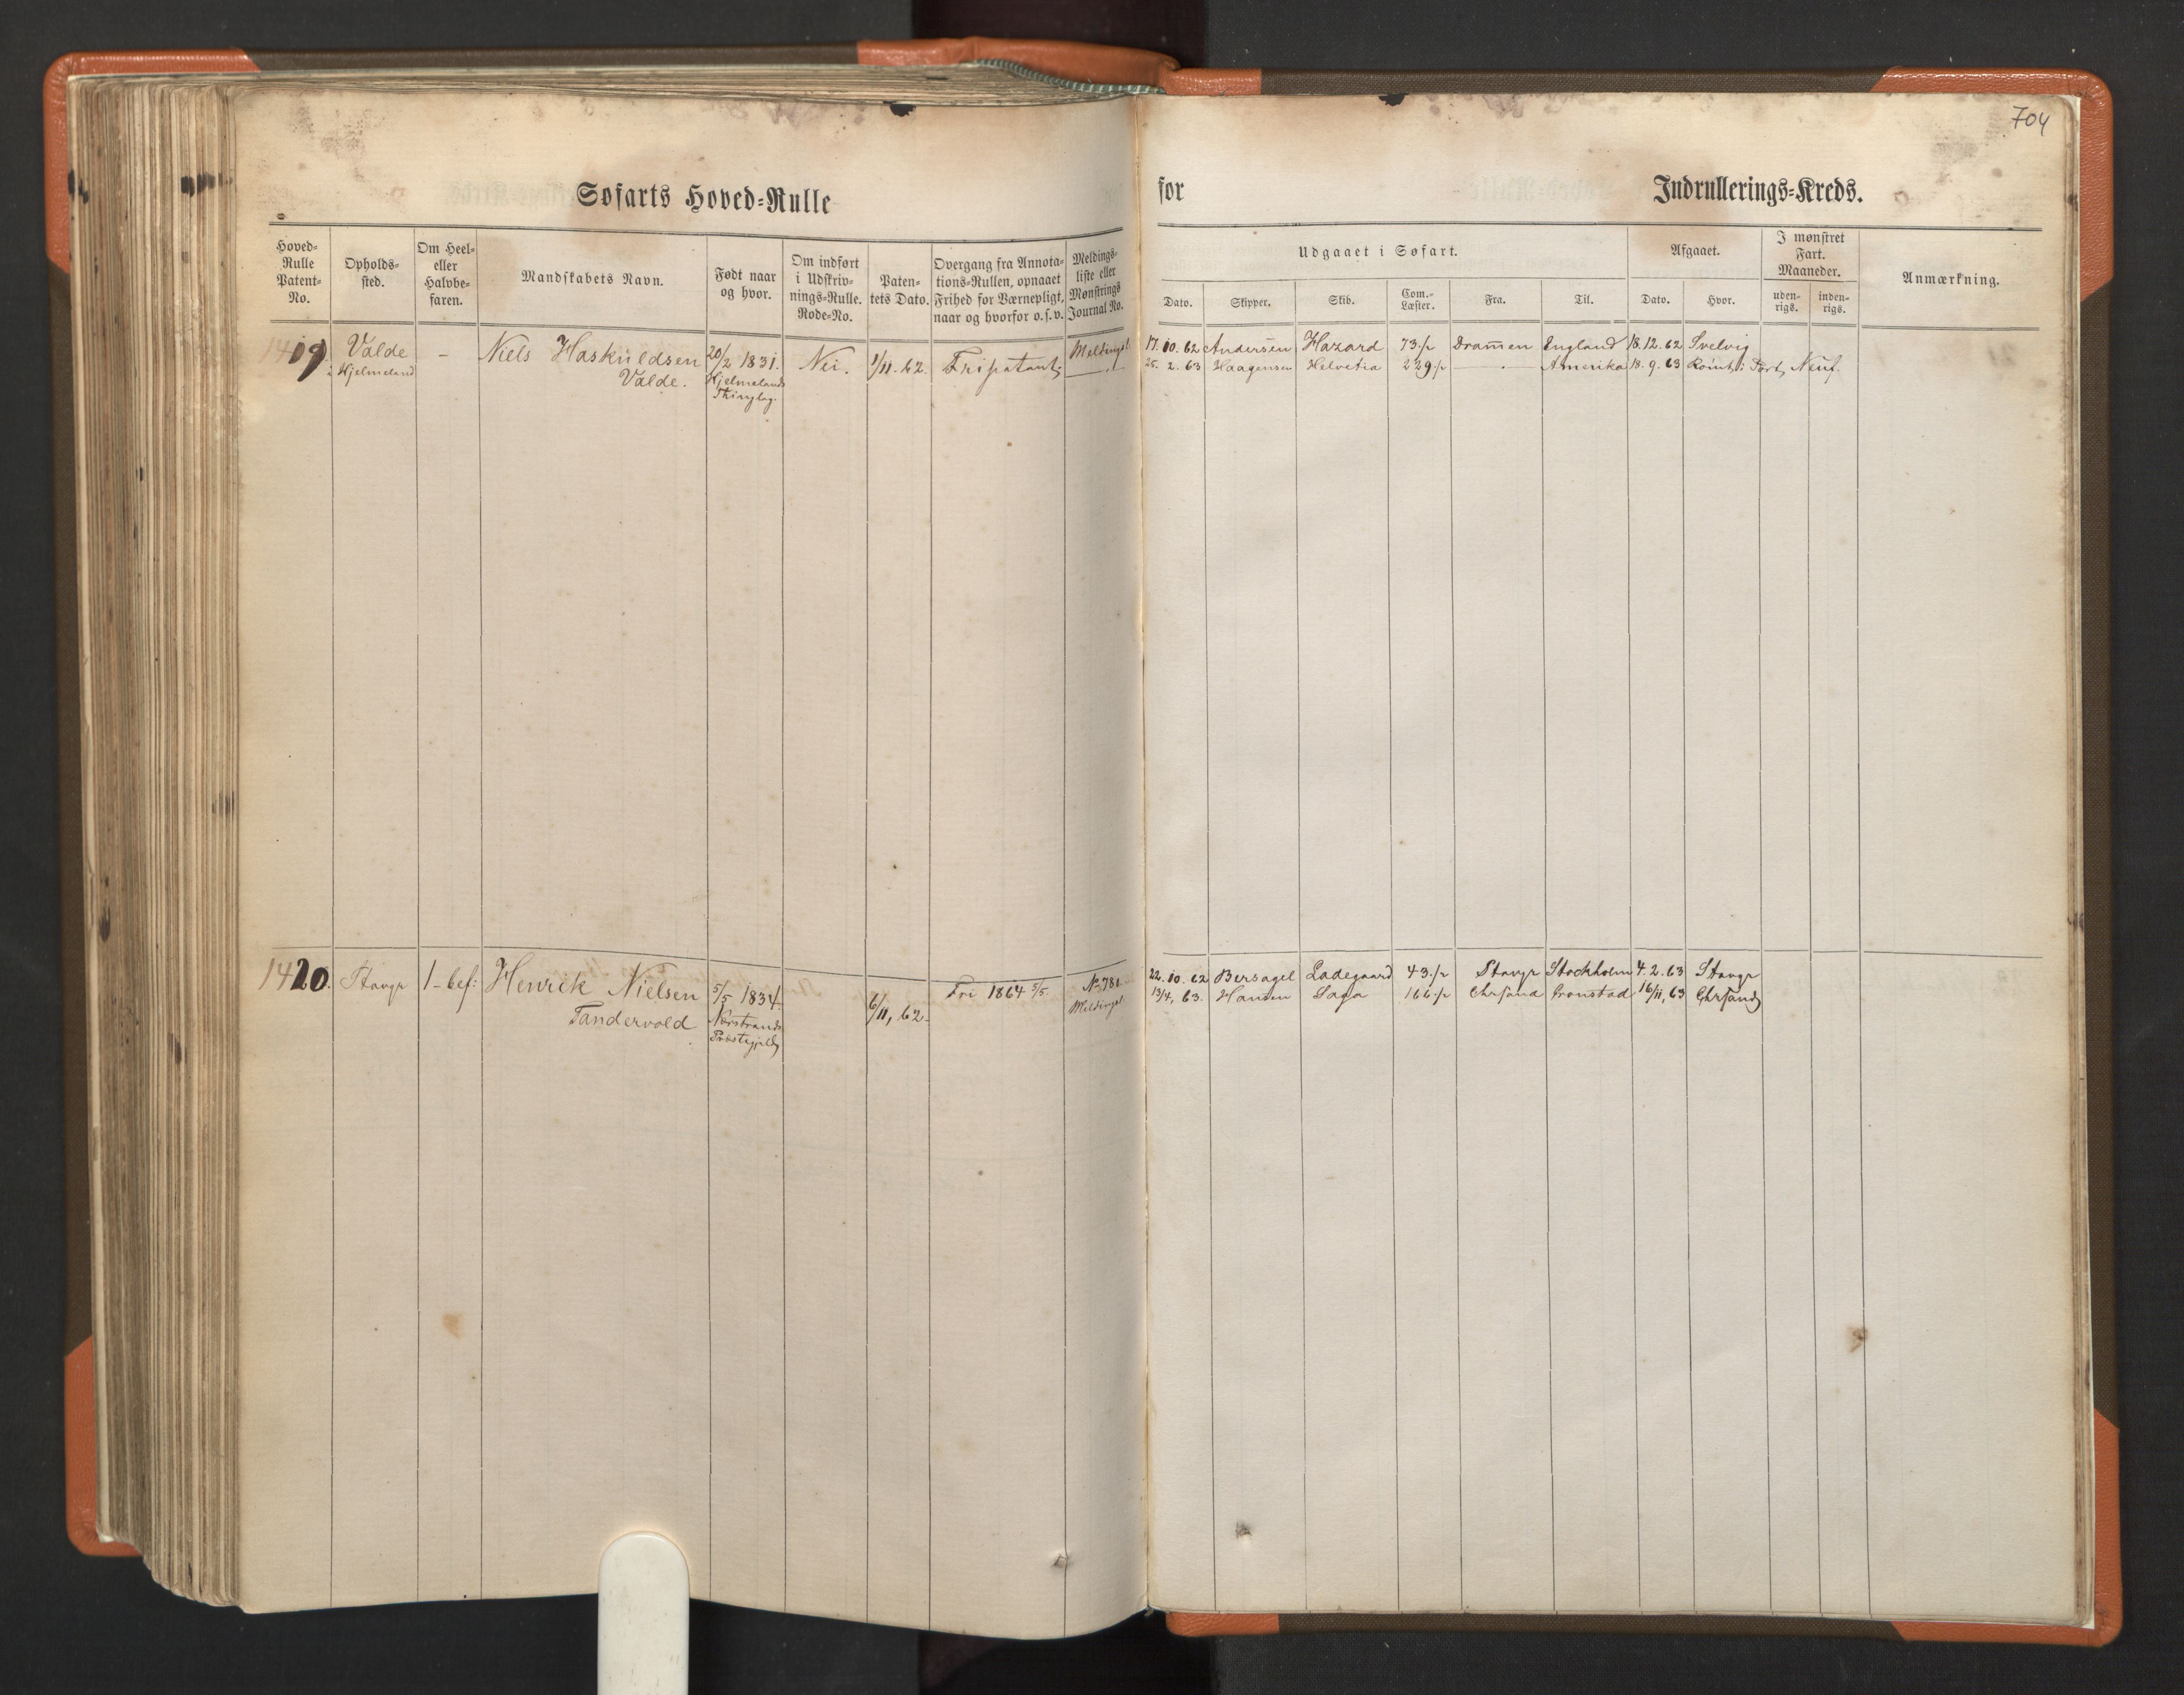 704
Søfarts Hoved-Rulle
for Indrullerings-Kreds.
Hoved-Rulle Patent-No.
Opholds-sted.
Om Heel- eller Halvbe-faren.
Mandskabets Navn.
Født naar og hvor.
Om indført i Udskriv-nings-Rulle. Rode-No.
Paten-tets Dato.
Overgang fra Annota-tions-Rullen, opnaaet Frihed for Værnepligt, naar og hvorfor o.s.v.
Meldings-liste eller Mønstrings Journal No.
Udgaaet i Søfart.
Dato. Skipper. Skib. Com.-Læster. Fra. Til.
Afgaaet.
Dato. Hvor.
I mønstret Fart. Maaneder.
uden-rigs. inden-rigs.
Anmærkning.
1419 Valde – Niels Haskuldsen 20/2 1831. Nei. 1/11.62. Fripatent. Meldingsl. 17.10.62 Andersen Hazard 73./2 Dramen England 18.12.62 Svelvig
i Hjelmeland Valde. Hjelmelands 25.2.63 Haagensen Helvetia 229./2 — " — Amerika 18.9.63 Rømt i
Thinglag.
1420. Stavgr 1-bef: Henrick Nielsen 5/5 1834. 6/11, 62. Fri 1864 5/5. No 781 22.10.62 Bersagel Ladegaard 43./2 Stavgr Stockholm 4.2.63 Stavgr
Tandervold Nærstrands Meldingsl 13/4, 63. Hansen Saga 166./2 Chrsand Cronstad 16/11, 63 Chrsand
Præstegjeld